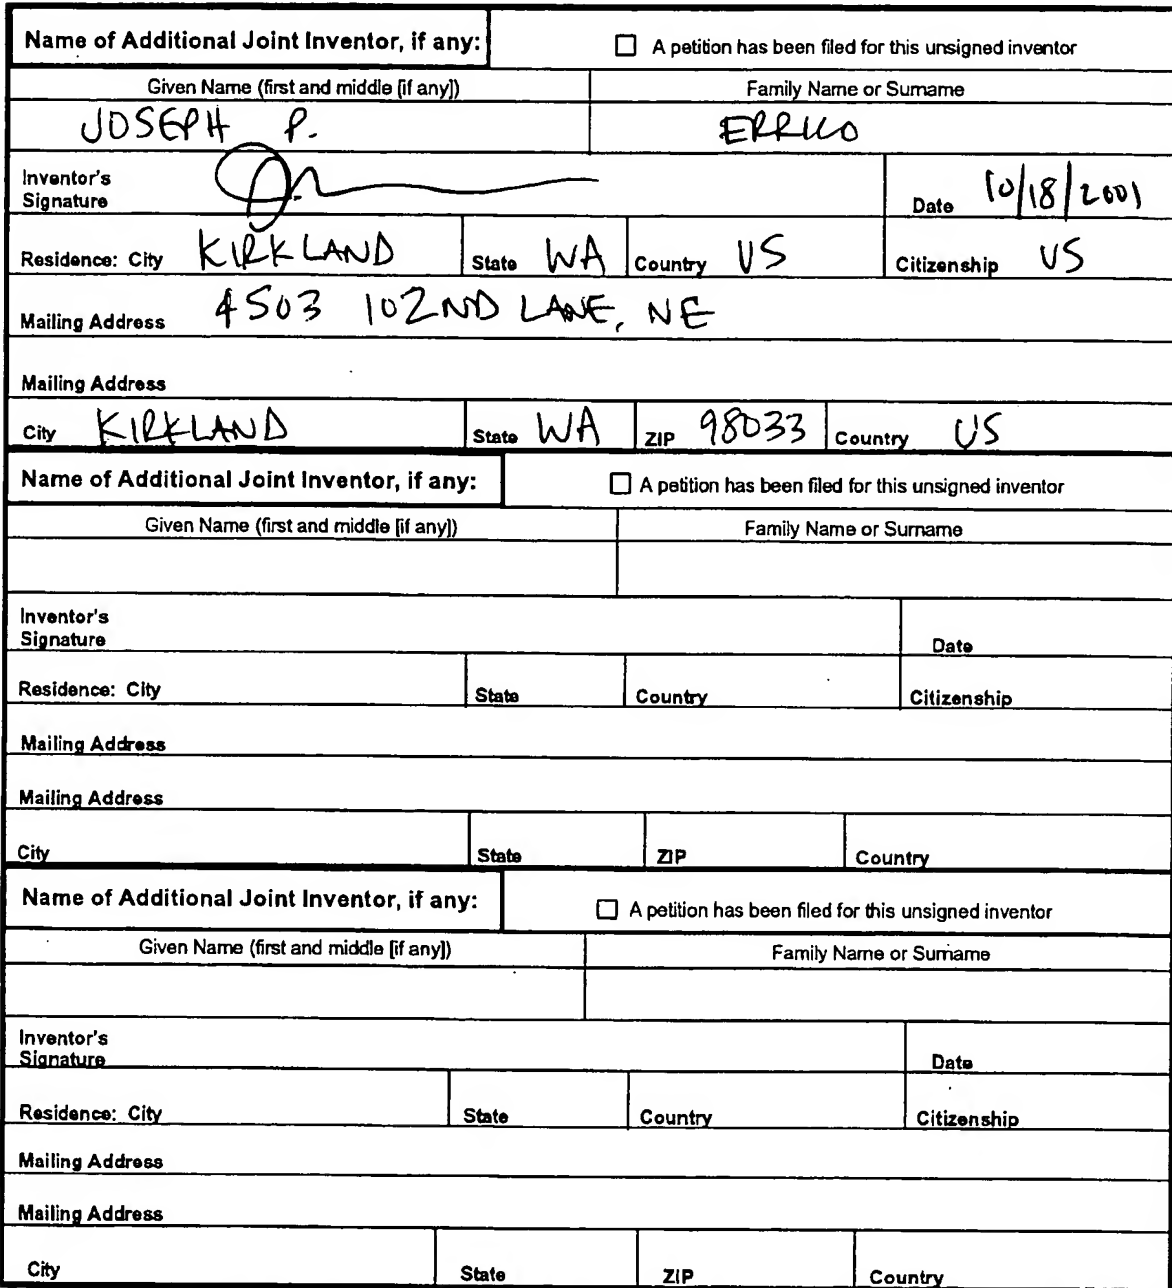 Name of Additional Joint Inventor, if any: ☐ A petition has been filed for this unsigned inventor
Given Name (first and middle [if any]) Family Name or Surname
JOSEPH P. ERRICO
Inventor's
Signature Date 10/18/2001
Residence: City KIRKLAND State WA Country US Citizenship US
Mailing Address 4503 102ND LANE, NE
Mailing Address
City KIRKLAND State WA ZIP 98033 Country US
Name of Additional Joint Inventor, if any: ☐ A petition has been filed for this unsigned inventor
Given Name (first and middle [if any]) Family Name or Surname
Inventor's
Signature Date
Residence: City State Country Citizenship
Mailing Address
Mailing Address
City State ZIP Country
Name of Additional Joint Inventor, if any: ☐ A petition has been filed for this unsigned inventor
Given Name (first and middle [if any]) Family Name or Surname
Inventor's
Signature Date
Residence: City State Country Citizenship
Mailing Address
Mailing Address
City State ZIP Country